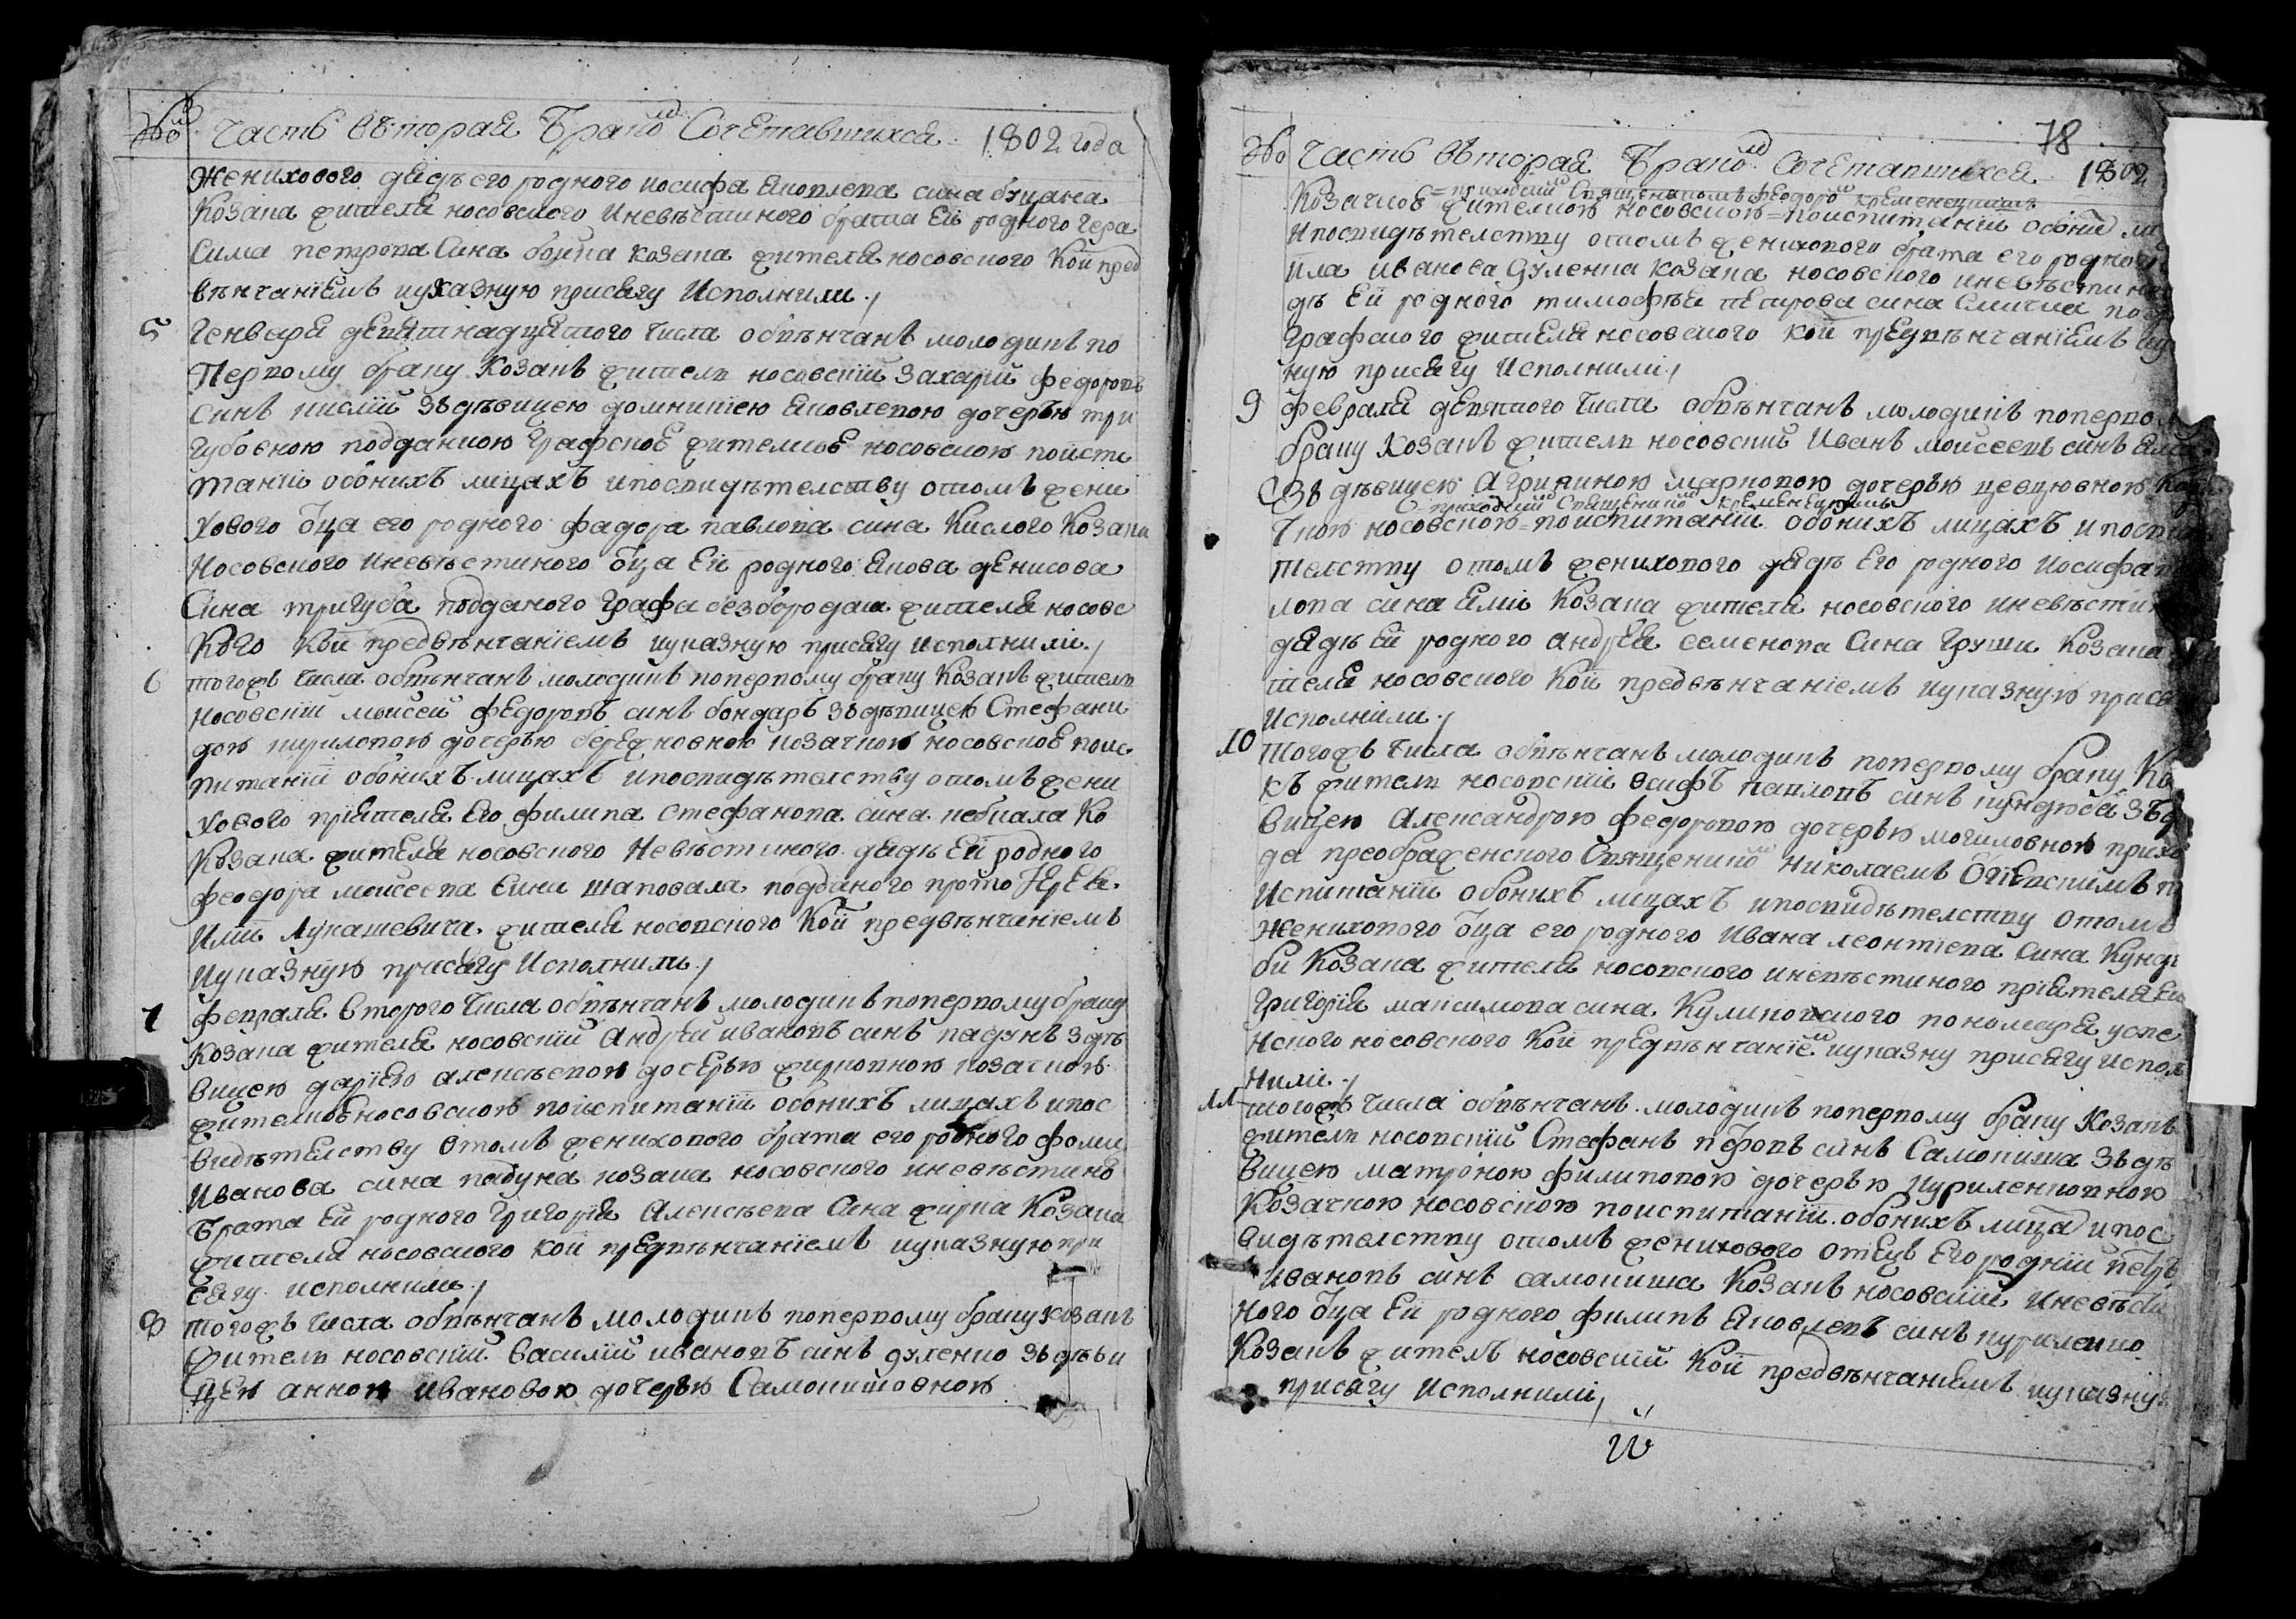 Часть вторая Бракомъ Сочетавшихся. 1802 года
женихового дядъ его родного иосифа яковлева сина буцана
козака жителя носовского и невѣстиного брата ей родного гера
сима петрова сина бойка козака жителя носовского кои пред
вѣнчаніемъ иуказную присягу исполнили.
5 Генваря девятнадцятого числа обвѣнчанъ молодикъ по
первому браку козакъ житель носовскій захарій федоровъ
синъ кислій зъ дѣвицею домникіею яковлевою дочерью три
губовною подданкою графскоє жителкоє носовскою поиспи
таніи обоихъ лицахъ и по свидѣтелству отомъ жени
хового оца его родного фадора павлова сина кислого козака
носовского и невѣстиного оца ей родного якова денисова
сина тригуба подданого графа безбородка жителя носовс
кого кои предвѣнчаніемъ иуказную присягу исполнили.
6 тогожъ числа обвѣнчанъ молодикъ поперкому браку козакъ житель
носовскій мойсей федоровъ синъ бондаръ зъ дѣвицею Стефани
дою кириловою дочерью бережновною козачкою носовскоє поис
питаніи обоихъ лицахъ и по свидѣтелству отомъ жени
хового пріятеля его филипа стефанова сина кебкала ко
козака жителя носовского невѣстиного дядъ ей родного
феодора моисеева сина шаповала подданого протоиерея
Лукашевича жителя носовского кои предвѣнчаніемъ
иуказную присягу исполнили.
7 февраля второго числа обвѣнчанъ молодикъ поперкому браку
козака жителя носовскій андрій ивановъ синъ падунъ зъ дѣ
вицею даріею алексѣевою дочерью жирковною козачкою
жителкоє носовскою поиспитаніи обоихъ лицахъ и по с
видѣтелству отомъ женихового брата его родного фоми
иванова сина падуна козака носовского и невѣстино
брата ей родного григорія алексѣева сина жирка козака
жителя носовского кои предвѣнчаніемъ иуказную при
сягу исполнили.
8 тогожъ числа обвѣнчанъ молодикъ поперкому браку козакъ
житель носовскій василій ивановъ синъ дуленко зъ дѣви
цею анною ивановою дочерью Самокишовною
78
Часть вторая Бракомъ Сочетавшихся 1802
приходскимъ священикомъ феодоромъ кременецкимъ
козачкоє жителкою носовскою поиспитаніи обоихъ ли
и по свидѣтелству отомъ женихового брата его родного
ила иванова дуленка козака носовского и невѣстиного
дъ ей родного тимофѣя петрова сина подд
графского жителя носовского кои предвѣнчаніемъ иу
ную присягу исполнили
9 февраля девятого числа обвѣнчанъ молодикъ поперком
браку козакъ житель носовскій иванъ моисеевъ синъ
зъ дѣвицею агрипиною марковою дочерью
приходскимъ священикомъ кременецкимъ
чкою носовскою поиспитаніи обоихъ лицахъ и по сви
телству отомъ женихового дядъ его родного иосифа
лова сина козака жителя носовского и невѣсти
дядъ ей родного андрея семенова сина груши козака
теля носовского кои предвѣнчаніемъ иуказную прися
исполнили.
10 тогожъ числа обвѣнчанъ молодикъ поперкому браку ко
къ житель носовскій осифъ павловъ синъ зъ дѣ
вицею александрою федоровою дочерью могиловною прихо
да преображенского священикомъ николаемъ по
испитаніи обоихъ лицахъ и по свидѣтелству отомъ
женихового оца его родного ивана леонтіева сина
би козака жителя носовского и невѣстиного пріятеля ей
григорія максимова сина пономаря успе
нского носовского кои предвѣнчаніемъ иуказну присягу испол
нили.
11 тогожъ числа обвѣнчанъ молодикъ поперкому браку козакъ
житель носовскій стефанъ синъ Самокиша зъ дѣ
вицею матроною филиповою дочерью кириленковною
козачкою носовскою поиспитаніи обоихъ лицахъ и по с
видѣтелству отомъ женихового отецъ его родній петръ
ивановъ синъ самокиша козакъ носовскій и невѣсти
ного оца ей родного филипъ яковлевъ синъ кириленко
козакъ жителъ носовскій кои предвѣнчаніемъ иуказну
присягу исполнили